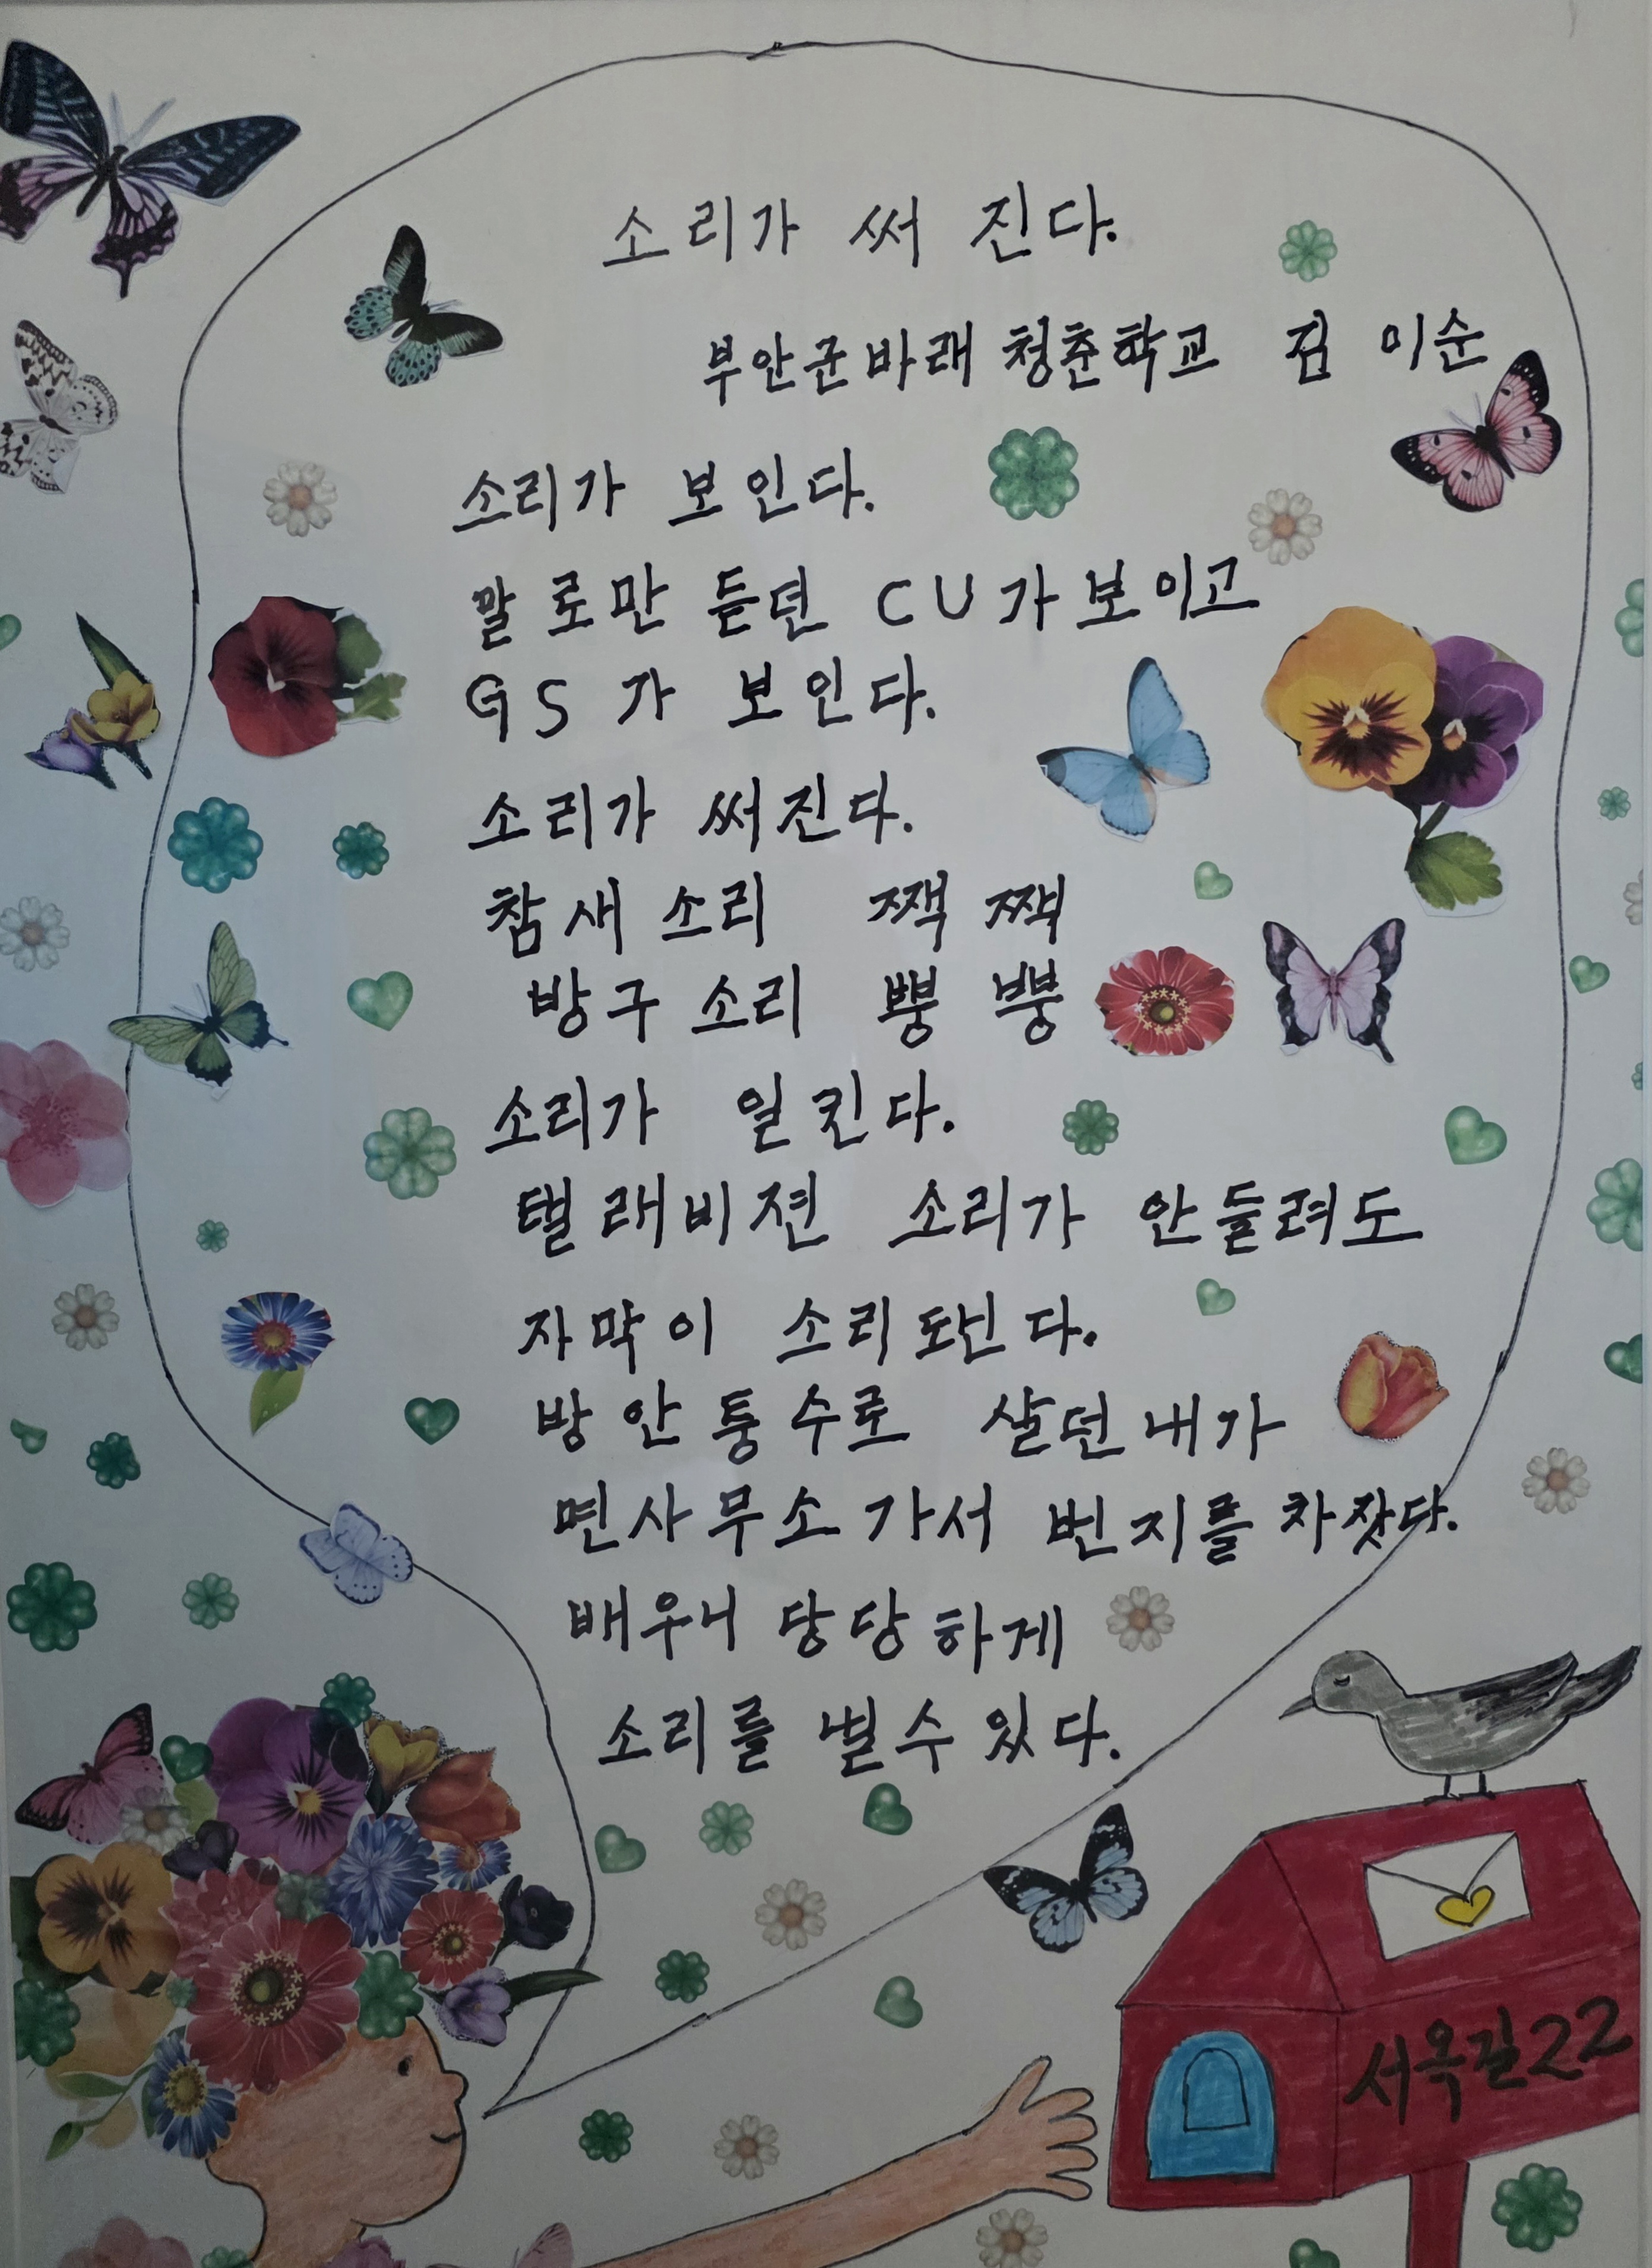 소리가 써 진다.
부안군바래 청춘학교 김 이순
소리가 보인다.
말로만 듣던 CU가보이고
GS가 보인다.
소리가 써진다.
참새 소리 짹 짹
방구 소리 뿡 뿡
소리가 일킨다.
탤래비젼 소리가 안들려도
자막이 소리된다.
방안퉁수로 살던내가
면사무소 가서 번지를 차잣다.
배우니 당당하게
소리를 낼수있다.
서옥길22